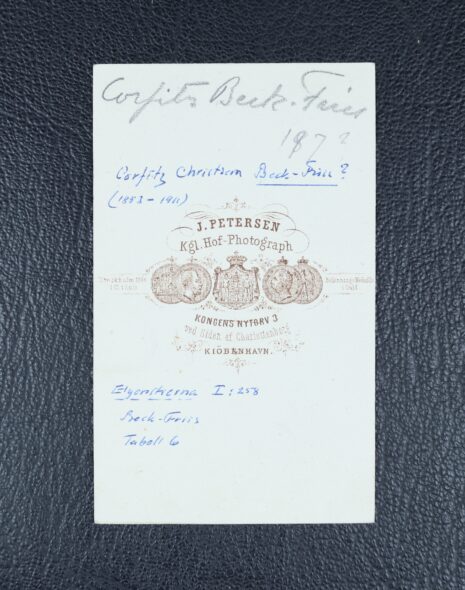 Corfitz Beck-Friis
187?
Corfitz Christian Beck-Friis?
(1853 - 1911)
J. PETERSEN
Kgl. Hof-Photograph
KONGENS NYTORV 3
ved Siden af Charlottenborg
KIÖBENHAVN.
Elgenstierna I: 258
Beck-Friis
Tabell 6